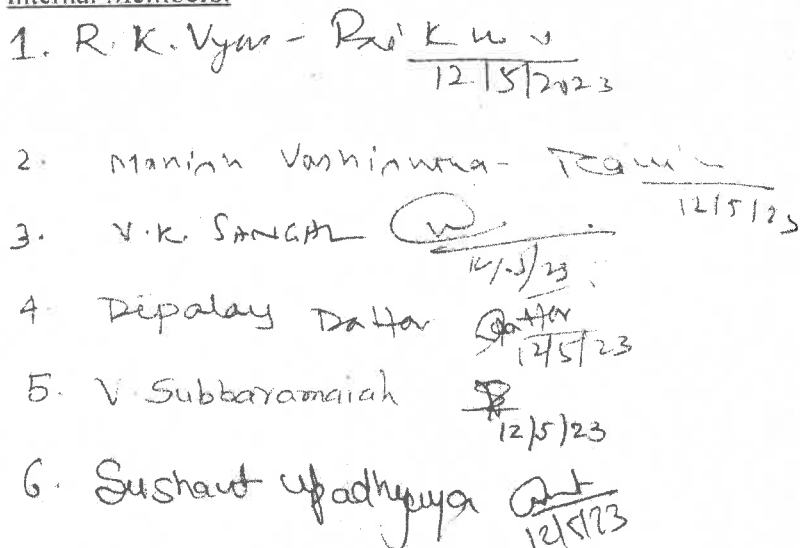 Internal Members:
1. R. K. Vyas -
12/5/2023
2. Manish Vashishtha -
12/5/23
3. V. K. SANGAL
12/5/23
4 Dipalay Dattar Dattar
12/5/23
5. V Subbaramaiah
12/5/23
6. Sushant Upadhyaya
12/5/23